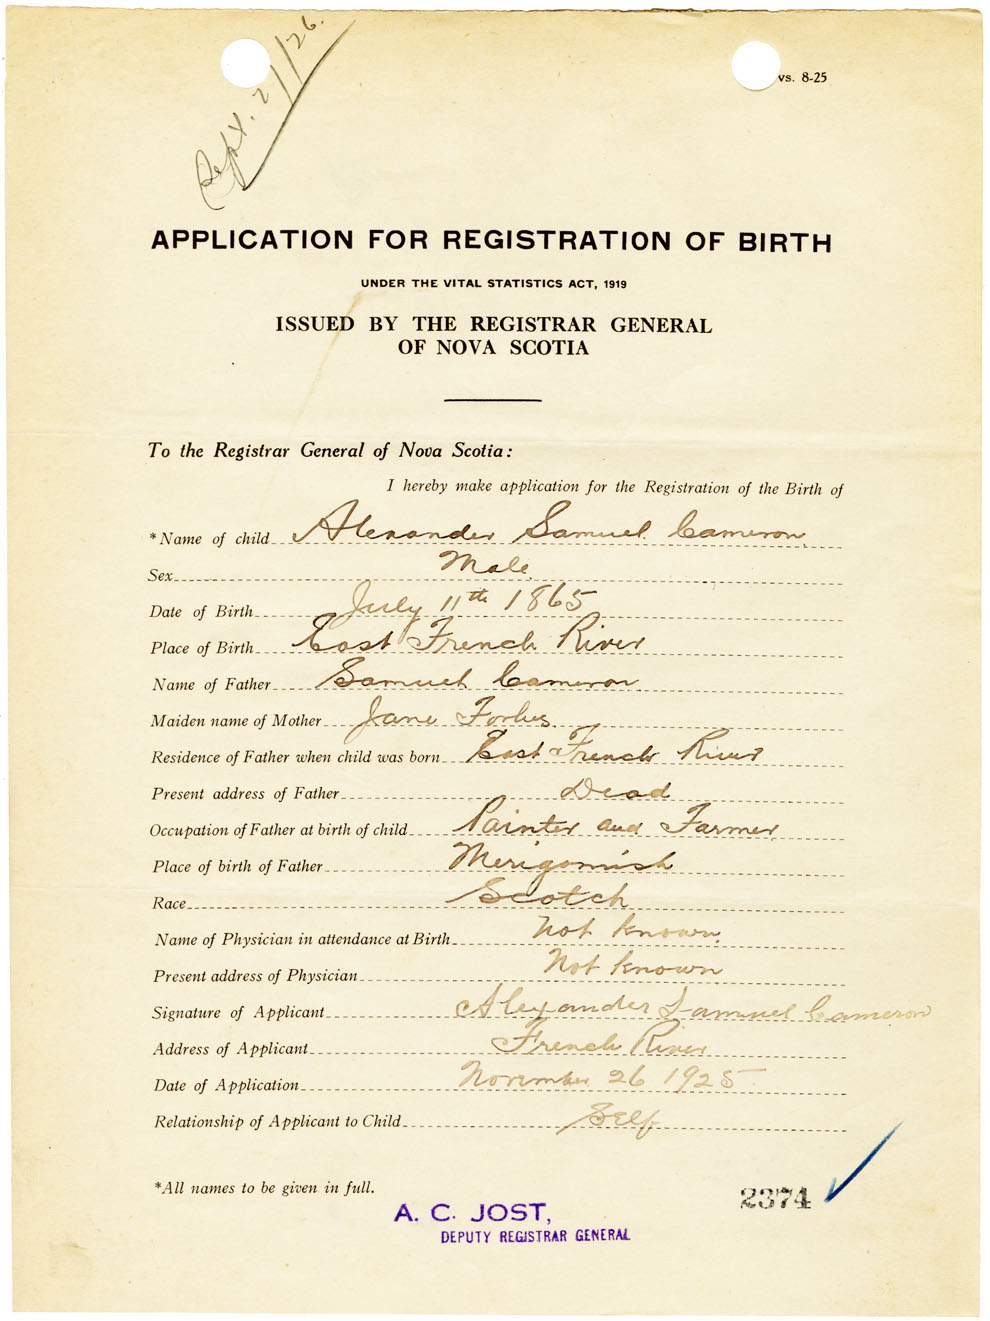 Sept. 21/26.
vs. 8-25
APPLICATION FOR REGISTRATION OF BIRTH
UNDER THE VITAL STATISTICS ACT, 1919
ISSUED BY THE REGISTRAR GENERAL
OF NOVA SCOTIA
To the Registrar General of Nova Scotia:
I hereby make application for the Registration of the Birth of
*Name of child Alexander Samuel Cameron
Sex Male
Date of Birth July 11th 1865
Place of Birth East French River
Name of Father Samuel Cameron
Maiden name of Mother Jane Forbes
Residence of Father when child was born East French River
Present address of Father Dead
Occupation of Father at birth of child Painter and Farmer
Place of birth of Father Merigomish
Race Scotch
Name of Physician in attendance at Birth Not known
Present address of Physician Not known
Signature of Applicant Alexander Samuel Cameron
Address of Applicant French River
Date of Application November 26 1925
Relationship of Applicant to Child Self
*All names to be given in full.
2374
A. C. JOST,
DEPUTY REGISTRAR GENERAL